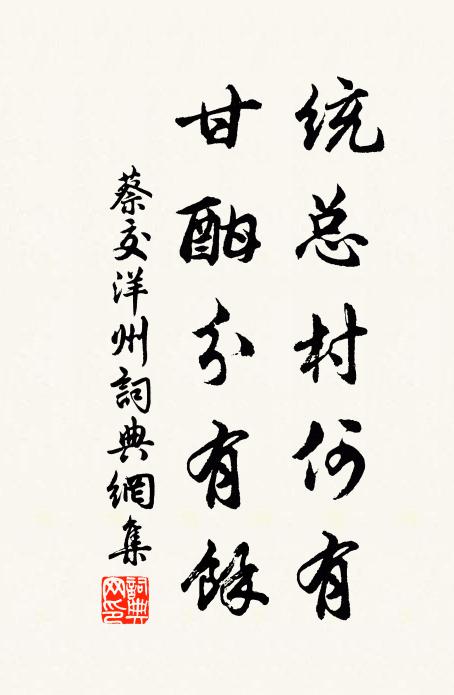 统总村何有
甘酣分有餘
蔡交洋州詞典網集
詞典网印